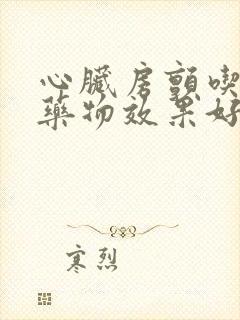 心臟房顫喫
藥物效果好
寒烈